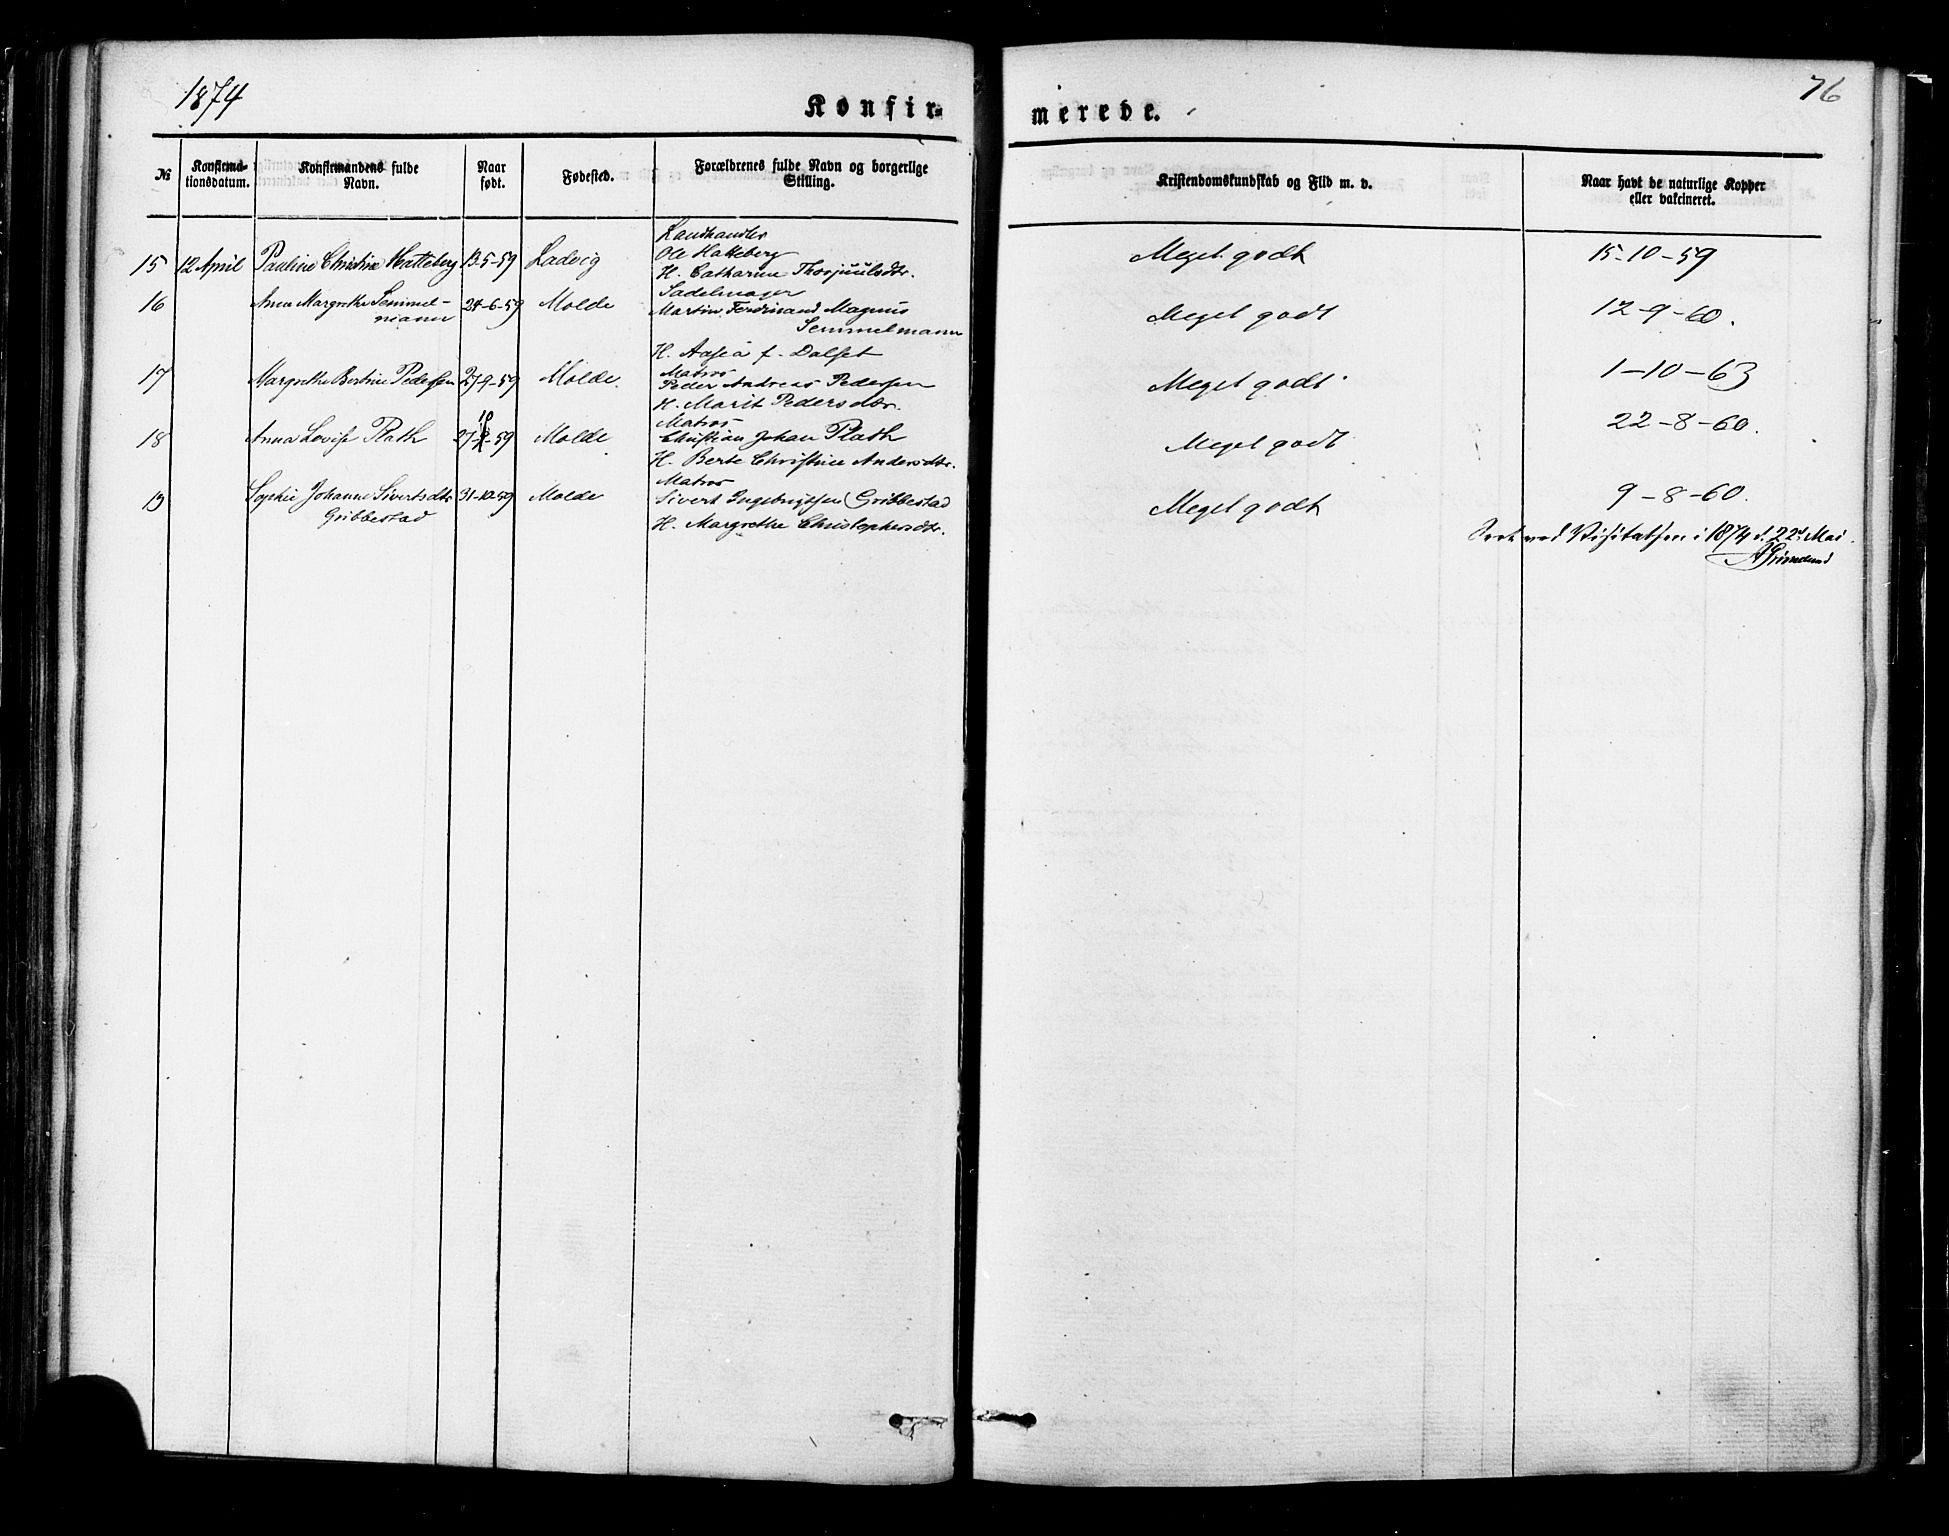 1874
76
Konfir-
merede.
№
Konfirma-
tionsdatum.
Konfirmandens fulde
Navn.
Naar
født.
Fødested.
Forældrenes fulde Navn og borgerlige
Stilling.
Kristendomskundskab og Flid m. v.
Naar havt de naturlige Kopper
eller vakcineret.
Landhandler
15 12 April Pauline Christine Hatteberg 13-5-59 Ladvig Ole Hatteberg Meget godt 15-10-59
H. Catharine Thorjuulsdtr.
Sadelmager
16 Anna Margrethe Semmel- 24-6-59 Molde Martin Ferdinand Magnus Meget godt 12-9-60.
mann Semmelmann
H. Aasea f. Dalset
Matros
17 Margrethe Bertine Pedersen 27-9-59 Molde. Peder Andreas Pedersen Meget godt 1-10-63
H. Marit Pedersdtr.
10 Matros
18 Anna Lovise Plath 27- -59 Molde Christian Johan Plath Meget godt 22-8-60.
H. Berte Christine Andersdtr.
Matros
19 Sophie Johanne Sivertsdtr 31-10-59 Molde Sivert Ingebrigtsen Gribbestad Meget godt 9-8-60.
Gribbestad H. Margrethe Christophersdtr.
Seet ved Visitatsen i 1874 d. 22d Mai.
A Grimelund